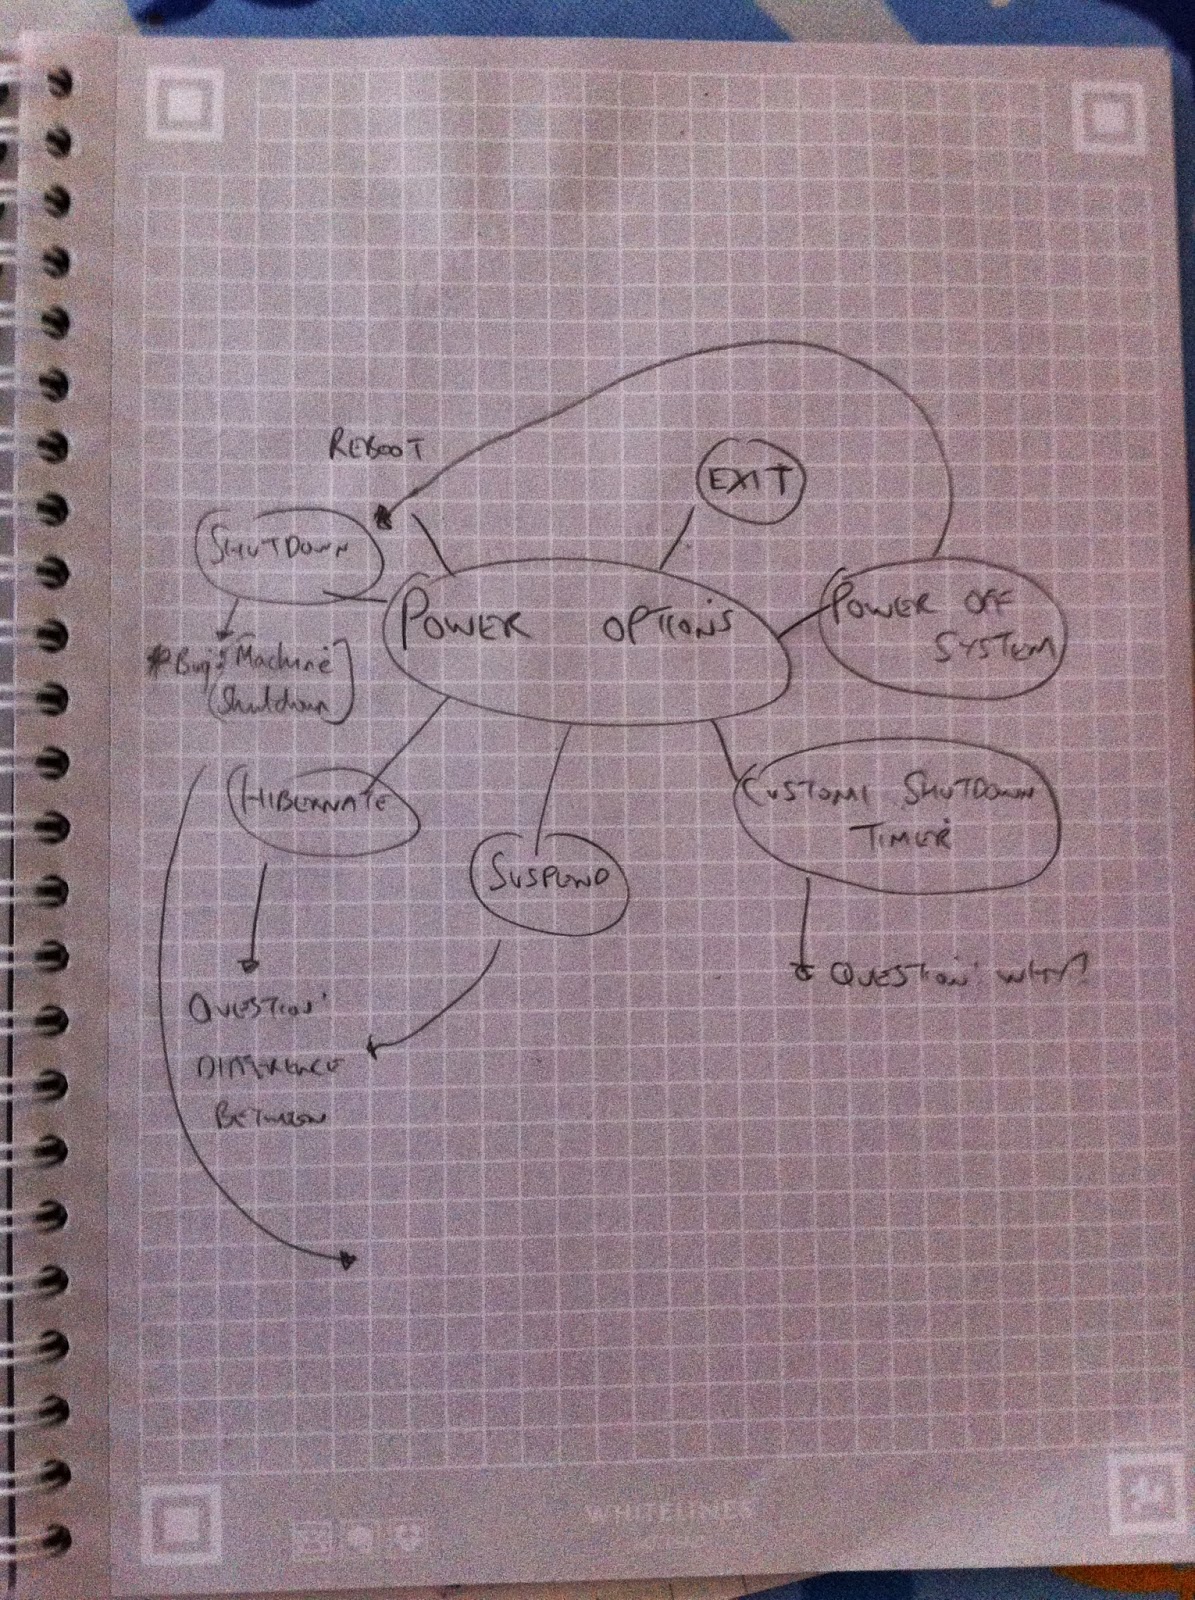 REBOOT
EXIT
SHUTDOWN
POWER OPTIONS
POWER OFF
SYSTEM
* Bug: [Machine
Shutdown]
HIBERNATE
CUSTOM SHUTDOWN
TIMER
SUSPEND
QUESTION: WHY?
QUESTION:
DIFFERENCE
BETWEEN
WHITELINES